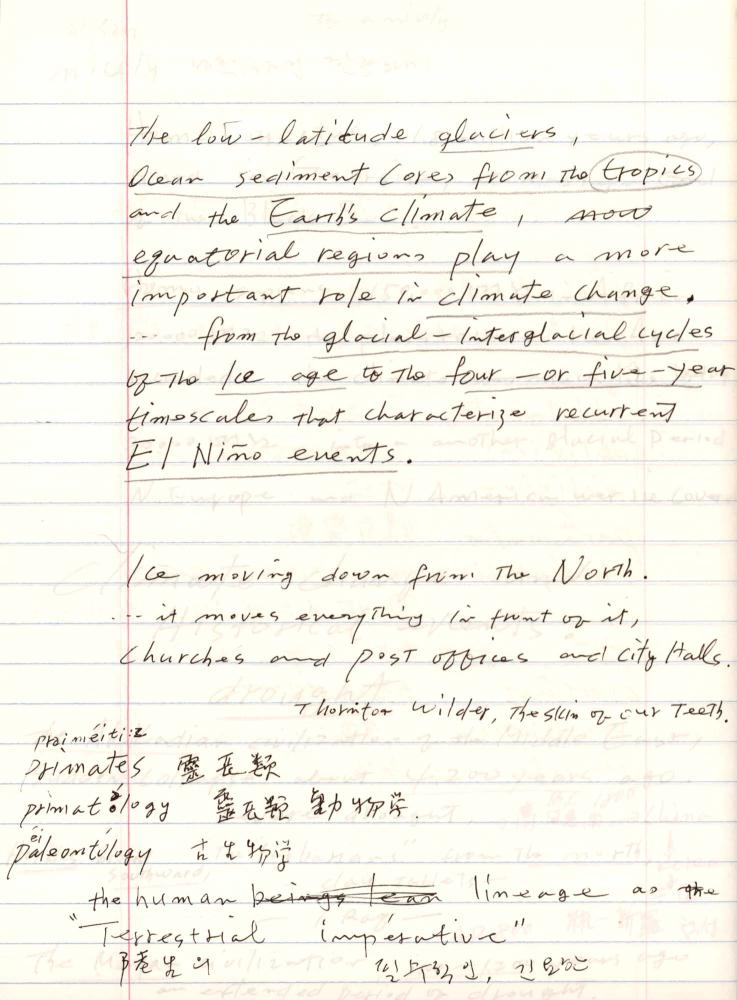 The low-latitude glaciers,
Ocean sediment Cores from The tropics
and the Earth's climate,
equatorial regions play a more
important role in climate change.
... from The glacial-interglacial cycles
of The Ice age to The four-or five-year
timescales that characterize recurrent
El Niño events.
Ice moving down from The North.
... it moves everything in front of it,
Churches and post offices and City Halls.
Thornton Wilder, The Skin of our Teeth.
praiméiti:z
primates 靈長類
primatólogy 靈長類 動物学.
ei
paleontólogy 古生物学
the human beings lineage as the
"Terrestrial impérative"
필수적인, 긴요한